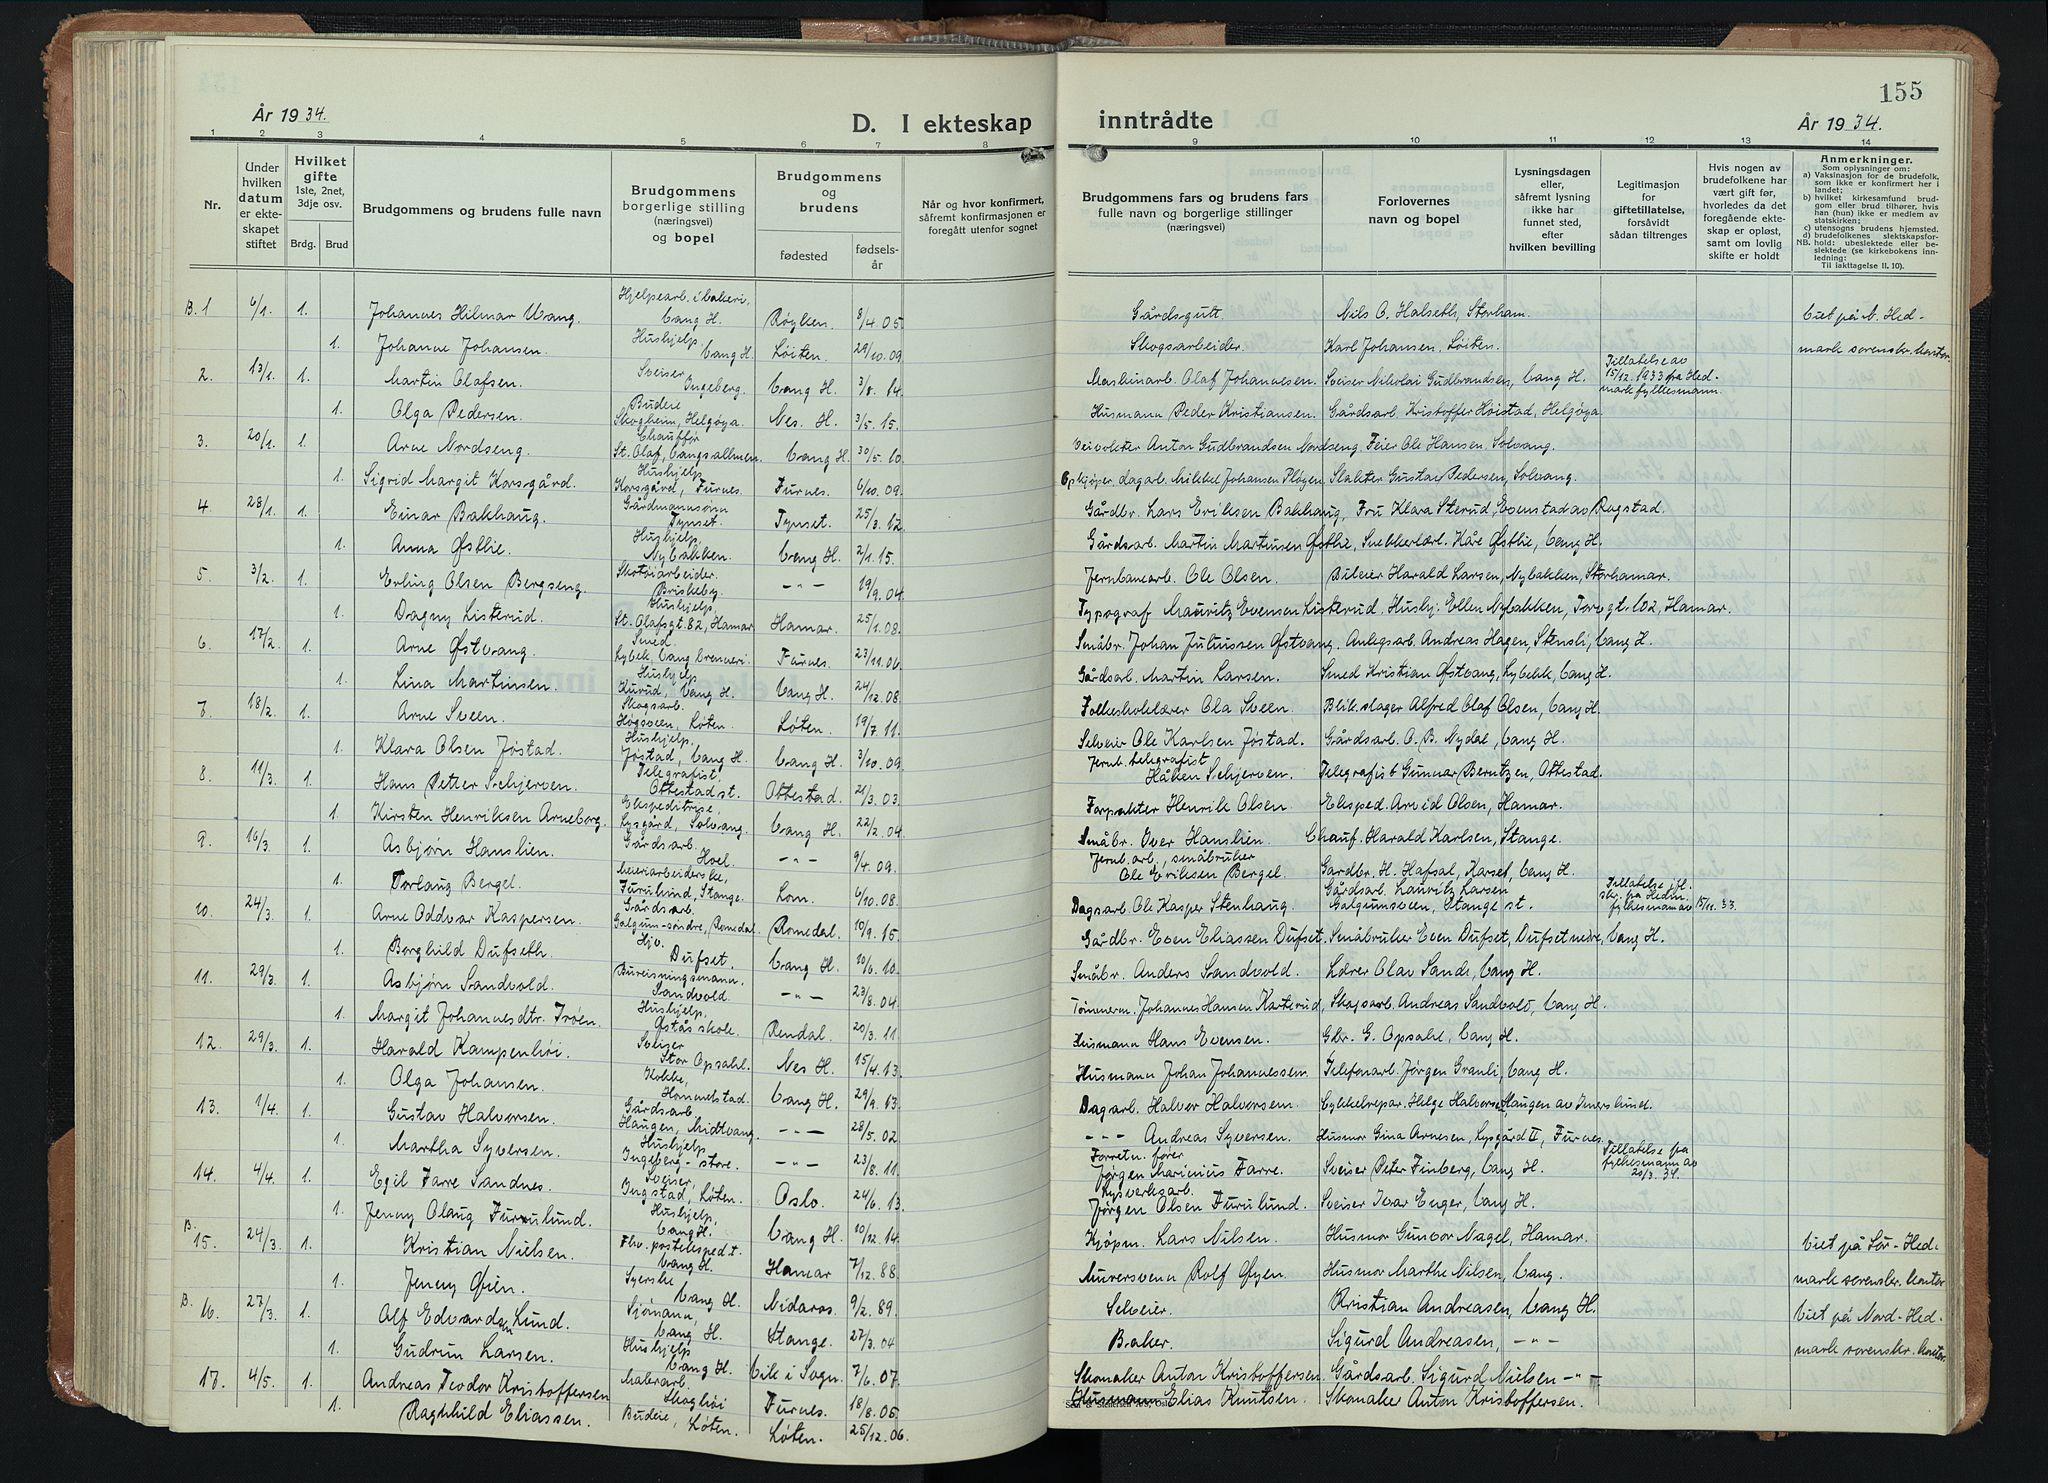 155
År 1934.
D. I ekteskap
inntrådte
År 1934.
1 2 3 4 5 6 7 8 9 10 11 12 13 14
Nr.
Under hvilken datum er ekteskapet stiftet
Hvilket gifte 1ste, 2net, 3dje osv.
Brdg. Brud
Brudgommens og brudens fulle navn
Brudgommens borgerlige stilling (næringsvei) og bopel
Brudgommens og brudens
fødested
fødselsår
Når og hvor konfirmert, såfremt konfirmasjonen er foregått utenfor sognet
Brudgommens fars og brudens fars fulle navn og borgerlige stillinger (næringsvei)
Forlovernes navn og bopel
Lysningsdagen eller, såfremt lysning ikke har funnet sted, efter hvilken bevilling
Legitimasjon for giftetillatelse, forsåvidt sådan tiltrenges
Hvis nogen av brudefolkene har vært gift før, hvorledes da det foregående ekteskap er opløst, samt om lovlig skifte er holdt
Anmerkninger.
Som oplysninger om:
a) Vaksinasjon for de brudefolk, som ikke er konfirmert her i landet;
b) hvilket kirkesamfund brudgom eller brud tilhører, hvis han (hun) ikke er medlem av statskirken;
c) utensogns brudens hjemsted.
d) brudefolkenes slektskapsforhold: ubeslektede eller beslektede (se kirkebokens innledning:
NB.
Til iakttagelse II. 10).
B. 1 6/1. 1. Johannes Hilmar Vang. Hjelpearb. i bakeri. Vang H. Røyken. 8/4. 05. Gårdsgutt. Nils O. Halseth, Storham. Viet på N. Hed-
1. Johanne Johansen. Hushjelp, Vang H. Løiten. 29/10. 09. Skogsarbeider. Karl Johansen, Løiten. mark sorenskr. kontor.
2. 13/1. 1. Martin Olafsen. Sveiser Ingeberg. Vang H. 3/8. 14. Maskinarb. Olaf Johannesen. Sveiser Nikolai Gudbrandsen, Vang H. Tillatelse av 15/12. 1933 fra Hedmark fylkesmann.
1. Olga Pedersen. Budeie Skogheim, Helgøya. Nes. H. 3/5. 15. Husmann Peder Kristiansen. Gårdsarb. Kristoffer Høistad, Helgøya
3. 20/1. 1. Arne Nordseng. Chauffør St. Olaf, Vangsallmen. Vang H. 30/5. 10. Veivokter Anton Gudbrandsen Nordseng. Feier Ole Hansen, Solvang.
1. Sigrid Margit Korsgård. Hushjelp Korsgård, Furnes. Furnes. 6/10. 09. Opkjøper, dagarb. Mikkel Johansen Pløyen. Slakter Gustav Pedersen, Solvang.
4. 28/1. 1. Einar Bakhaug. Gårdmannssønn Tynset. Tynset. 25/3. 12. Gårdbr. Lars Eriksen Bakhaug, Fru Klara Sterud, Evenstad av Rogstad.
1. Anna Østlie. Hushjelp, Nybakken. Vang H. 2/1. 15. Gårdsarb. Martin Martinsen Østlie, Snekkerlærl. Kåre Østlie, Vang H.
5. 3/2. 1. Erling Olsen Bergseng. Skotøiarbeider. Briskeby. -"- 19/9. 04. Jernbanearb. Ole Olsen. Bileier Harald Larsen, Nybakken, Storhamar.
1. Dagny Listerud. Hushjelp, St. Olafsgt. 82, Hamar. Hamar. 25/1. 08. Typograf Mauritz Evensen Listerud. Hushj. Ellen Nybakken, Torvgt. 102, Hamar.
6. 17/2. 1. Arne Østvang. Smed. Lybek, Vang brenneri. Furnes. 23/11. 06. Småbr. Johan Juliussen Østvang. Anlegsarb. Andreas Hagen, Stensli, Vang H.
1. Lina Martinsen. Hushjelp Kurud, Vang H. Vang H. 24/12. 08. Gårdsarb. Martin Larsen. Smed Kristian Østvang, Lybekk, Vang H.
7. 18/2. 1. Arne Sveen. Skogsarb. Høgsveen, Løten. Løten. 19/7. 11. Folkeskolelærer Ola Sveen. Blikslager Alfred Olaf Olsen, Vang H.
1. Klara Olsen Jøstad. Hushjelp, Jøstad, Vang H. Vang H. 3/10. 09. Selveier Ole Karlsen Jøstad. Gårdsarb. O. B. Nydal, Vang H.
8. 11/3. 1. Hans Petter Schjerven. Telegrafist. Ottestad st. Ottestad. 21/3. 03. Jernb. telegrafist Håken Schjerven. Telegrafist Gunnar Berntzen, Ottestad.
1. Kirsten Henriksen Arneberg. Ekspeditrise Lysgård, Solvang. Vang H. 22/2. 04. Forpakter Henrik Olsen. Eksped. Arvid Olsen, Hamar.
9. 16/3. 1. Asbjørn Hanslien. Gårdsarb. Hoel. -"- 9/4. 09. Småbr. Over Hanslien. Chauf. Harald Karlsen, Stange.
1. Torlaug Bergel. Meieriarbeiderske, Furulund, Stange. Lom. 6/10. 08. Jernb. arb., småbruker Ole Eriksen Bergel. Gardbr. H. Hafsal, Karset, Vang H.
10. 24/3. 1. Arne Oddvar Kaspersen. Gårdsarb. Galgum-søndre, Romedal. Romedal. 10/9. 15. Dagsarb. Ole Kasper Stenhaug. Gårdsarb. Lauritz Larsen Galgumsveen, Stange st. Tillatelse jfl. skr. fra Hedm. fylkesmann av 15/11. 33.
1. Borghild Dufseth. Hjv. Dufset. Vang H. 10/6. 10. Gårdbr. Even Eliassen Dufset. Småbruker Even Dufset, Dufset nedre, Vang H.
11. 29/3. 1. Asbjørn Sandvold. Bureisningsmann, Sandvold. -"- 23/8. 04. Småbr. Anders Sandvold. Lærer Olav Sande, Vang H.
1. Margit Johannesdtr. Trøen. Hushjelp, Østås skole. Rendal. 20/3. 11. Tømmerm. Johannes Hansen Karterud, Skogsarb. Andreas Sandvold, Vang H.
12. 29/3. 1. Harald Kampenhøi. Sveiser Stor Opsahl. Nes H. 15/4. 13. Husmann Hans Evensen. Gbr. G. Opsahl, Vang H.
1. Olga Johansen. Kokke, Hommelstad. Vang H. 29/9. 13. Husmann Johan Johannessen. Telefonarb. Jørgen Granli, Vang H.
13. 1/4. 1. Gustav Halversen. Gårdsarb. Haugen, Midtvang. -"- 28/5. 02. Dagarb. Halver Halversen. Sykkelrepar. Helge Halversen Haugen av Imerslund.
1. Martha Syversen. Hushjelp Ingeberg-store. -"- 23/8. 11. -"- Andreas Syversen. Husmor Gina Arnesen, Lysgård II, Furnes.
14. 4/4. 1. Egil Farre Sandnes. Sveiser, Ingstad, Løten. Oslo. 24/6. 13. Forretn. fører Jørgen Marinius Farre. Sveiser Peter Finberg, Vang H. Tillatelse fra fylkesmann av 20/3. 34.
1. Jenny Olaug Furulund. Hushjelp, Vang H. Vang H. 10/12. 14. Lysverksarb. Jørgen Olsen Furulund. Sveiser Ivar Enger, Vang H.
B. 15. 24/3. 1. Kristian Nielsen. Fhv. postekspedt. Vang H. Hamar 7/12. 88. Kjøpm. Lars Nilsen. Husmor Gunvor Nagel, Hamar. Viet på Sør-Hed-
1. Jenny Øien. Syerske Vang H. Nidaros. 9/2. 89. Murersvenn Rolf Øyen. Husmor Marthe Nilsen, Vang. mark sorenskr. kontor
B. 16. 27/3. 1. Alf Edvardsen Lund. Sjømann, Vang H. Stange. 27/3. 04 Selveier. Kristian Andreasen, Vang H. Viet på Nord-Hed-
1. Gudrun Larsen. Hushjelp Vang H. Vik i Sogn. 7/6. 07. Baker. Sigurd Andreasen, -"- mark sorenskr. kontor.
17. 4/5. 1. Andreas Teodor Kristoffersen Malerarb. Skoglhøi Furnes. 18/8. 05 Skomaker Anton Kristoffersen. Gårdsarb. Sigurd Nielsen -"-
1. Ragnhild Eliassen. Budeie, Løten. Løten. 25/12. 06. Husmann Elias Knutsen. Skomaker Anton Kristoffersen.